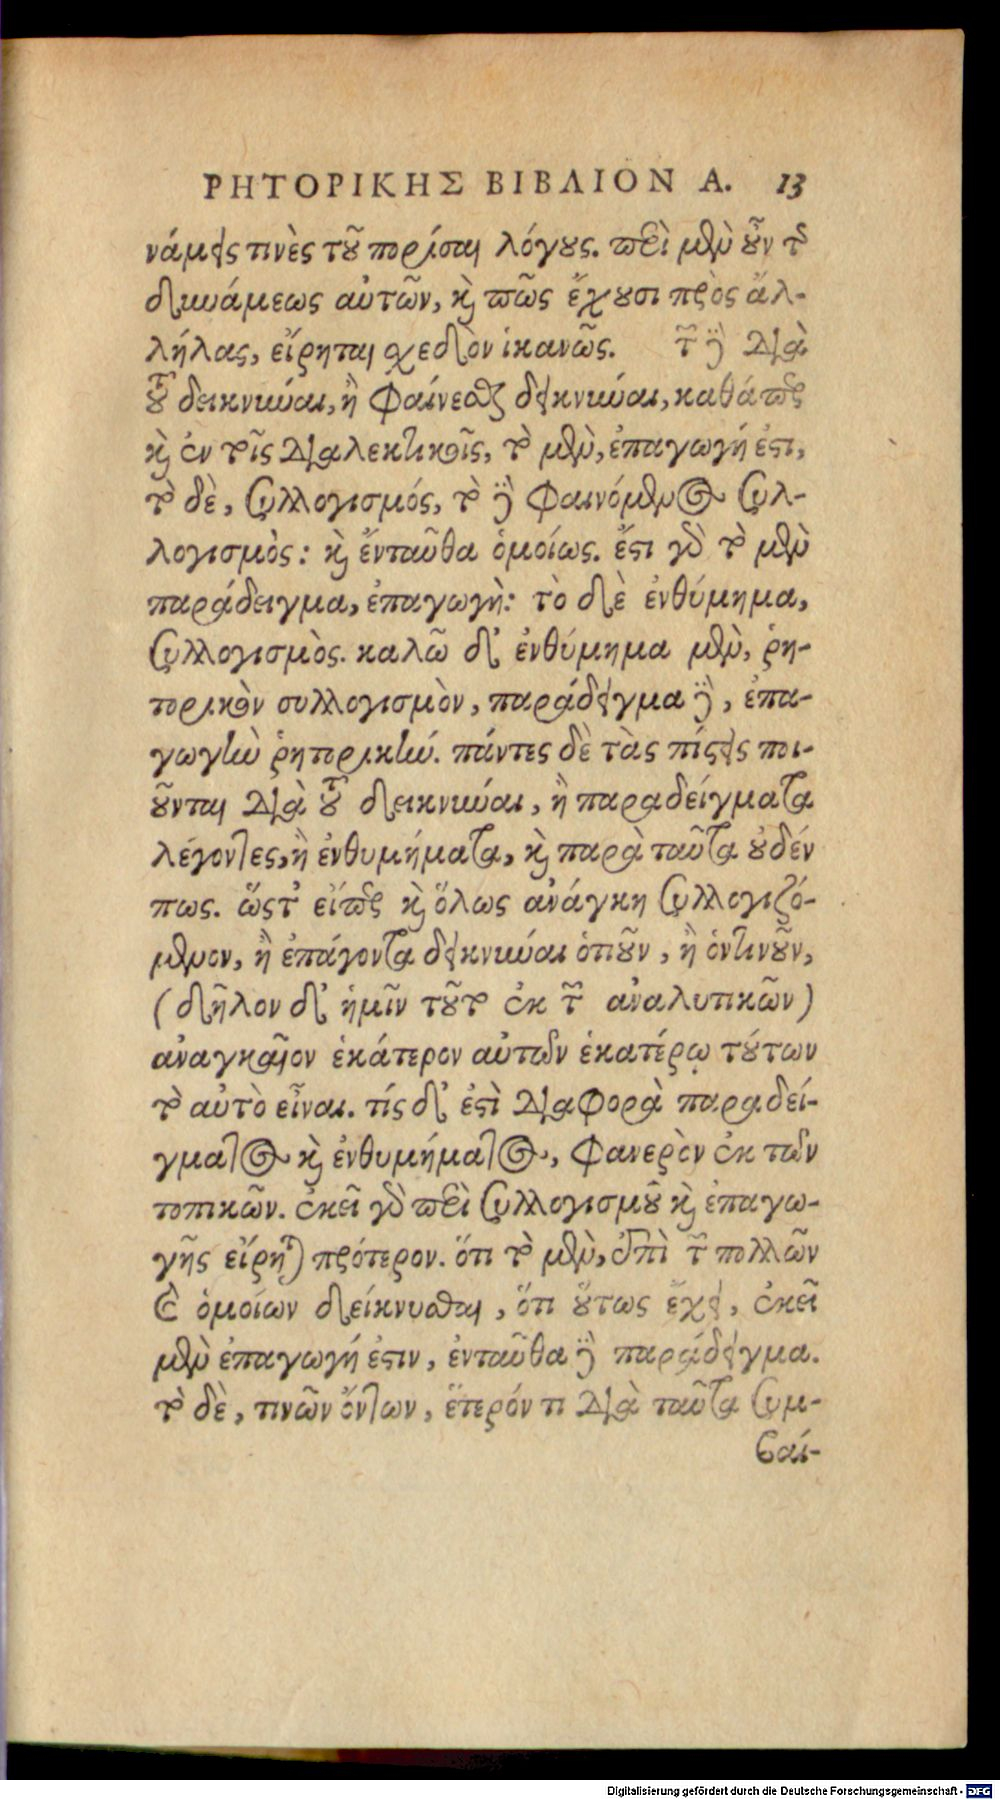 ΡΗΤΟΡΙΚΗΣ ΒΙΒΛΙΟΝ Α. 13
νάμεις τινὲς τοῦ πορίσαι λόγους. περὶ μὲν οὖν τῆς
δυνάμεως αὐτῶν, καὶ πῶς ἔχουσι πρὸς ἀλ-
λήλας, εἴρηται σχεδὸν ἱκανῶς. τῶν δὲ διὰ
τοῦ δεικνύναι, ἢ φαίνεσθαι δεικνύναι, καθάπερ
καὶ ἐν τοῖς διαλεκτικοῖς, τὸ μὲν, ἐπαγωγή ἐστι,
τὸ δὲ, συλλογισμός, τὸ δὲ φαινόμενος συλ-
λογισμὸς: καὶ ἔνταῦθα ὁμοίως. ἔστι γὰρ τὸ μὲν
παράδειγμα, ἐπαγωγὴ: τὸ δὲ ἐνθύμημα,
συλλογισμὸς. καλῶ δ' ἐνθύμημα μὲν, ῥη-
τορικὸν συλλογισμὸν, παράδειγμα δὲ, ἐπα-
γωγὴν ῥητορικήν. πάντες δὲ τὰς πίστεις ποι-
οῦνται διὰ τοῦ δεικνύναι, ἢ παραδείγματα
λέγοντες, ἢ ἐνθυμήματα, καὶ παρὰ ταῦτα οὐδέν
πως. ὥςτ' εἴπερ καὶ ὅλως ἀνάγκη συλλογιζό-
μενον, ἢ ἐπάγοντα δεικνύναι ὁτιοῦν, ἢ ὁντινοῦν,
(δῆλον δ' ἡμῖν τοῦτο ἐκ τῶν ἀναλυτικῶν)
ἀναγκαῖον ἑκάτερον αὐτῶν ἑκατέρῳ τούτων
τὸ αὐτὸ εἶναι. τίς δ' ἐστὶ διαφορὰ παραδεί-
γματος καὶ ἐνθυμήματος, φανερὸν ἐκ τῶν
τοπικῶν. ἐκεῖ γὰρ περὶ συλλογισμοῦ καὶ ἐπαγω-
γῆς εἴρηται πρότερον. ὅτι τὸ μὲν, ἐπὶ τῶν πολλῶν
καὶ ὁμοίων δείκνυσθαι, ὅτι οὕτως ἔχει, ἐκεῖ
μὲν ἐπαγωγή ἐστιν, ἐνταῦθα δὲ παράδειγμα.
τὸ δὲ, τινῶν ὄντων, ἕτερόν τι διὰ ταῦτα συμ-
βαί-
Digitalisierung gefördert durch die Deutsche Forschungsgemeinschaft - DFG